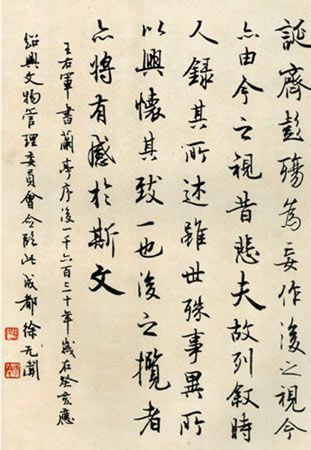 誕齊彭殤為妄作後之視今
亦由今之視昔悲夫故列敘時
人錄其所述雖世殊事異所
以興懷其致一也後之攬者
亦將有感於斯文
王右軍書蘭亭序後一千六百三十年歲在癸亥應
紹興文物管理委員會命臨此成都徐无聞